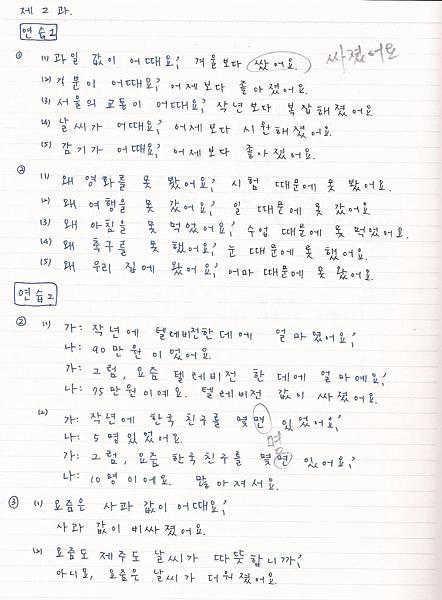 제 2 과.
연습1
① (1) 과일 값이 어때요? 겨울보다 쌌어요. 싸졌어요
(2) 기분이 어때요? 어제보다 좋아졌어요.
(3) 서울의 교통이 어때요? 작년보다 복잡해졌어요.
(4) 날씨가 어때요? 어제보다 시원해졌어요.
(5) 감기가 어때요? 어제보다 좋아졌어요.
② (1) 왜 영화를 못 봤어요? 시험 때문에 못 봤어요.
(2) 왜 여행을 못 갔어요? 일 때문에 못 갔어요.
(3) 왜 아침을 못 먹었어요? 수업 때문에 못 먹었어요.
(4) 왜 축구를 못 했어요? 눈 때문에 못 했어요.
(5) 왜 우리 집에 왔어요? 어마 때문에 못 왔어요.
연습2
② (1) 가: 작년에 텔레비전 한 데에 얼마였어요?
나: 90만 원이었어요.
가: 그럼, 요즘 텔레비전 한 데에 얼마예요?
나: 75만 원이예요. 텔레비전 값이 싸졌어요.
(2) 가: 작년에 한국 친구를 몇 면 있었어요?
나: 5명 있었어요. 명
가: 그럼, 요즘 한국 친구를 몇 면 있어요?
나: 10명이에요. 많아져서요.
③ (1) 요즘은 사과 값이 어때요?
사과 값이 비싸졌어요.
(2) 요즘도 제주도 날씨가 따뜻합니까?
아니요, 요즘은 날씨가 더워졌어요.